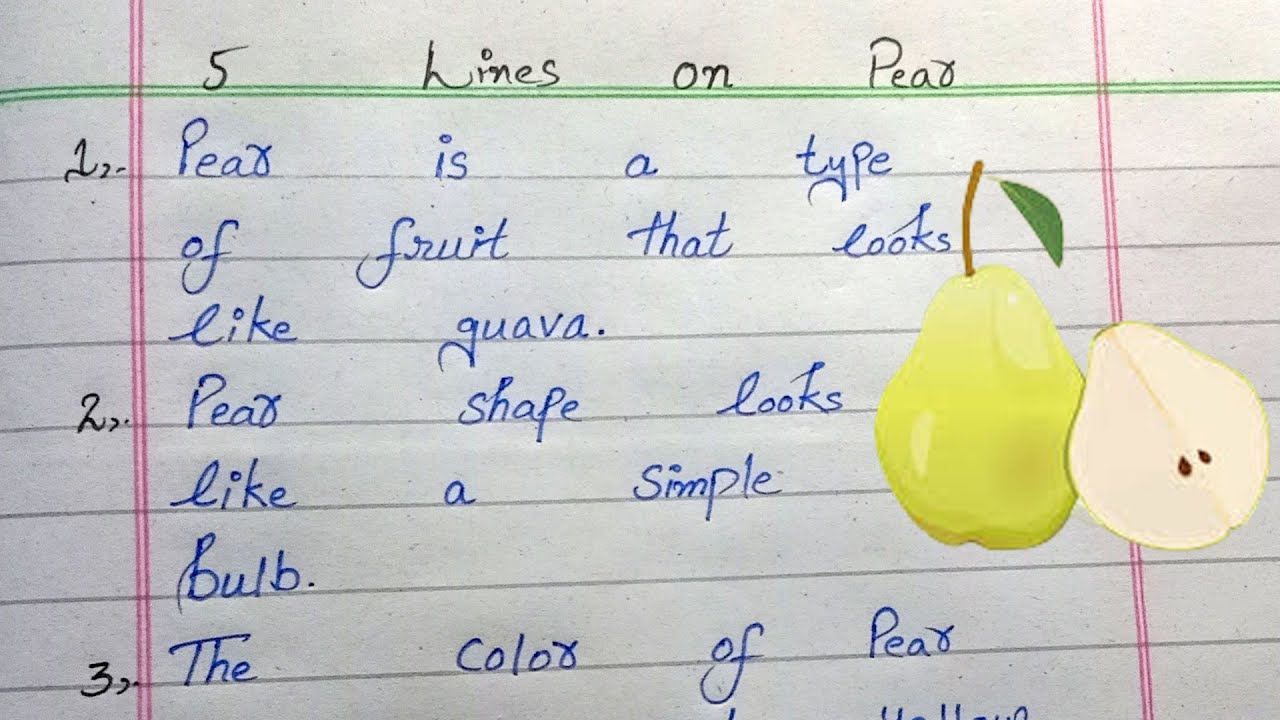 5 Lines on Pear
1. Pear is a type
of fruit that looks
like guava.
2. Pear shape looks
like a simple
Bulb.
3. The color of Pear